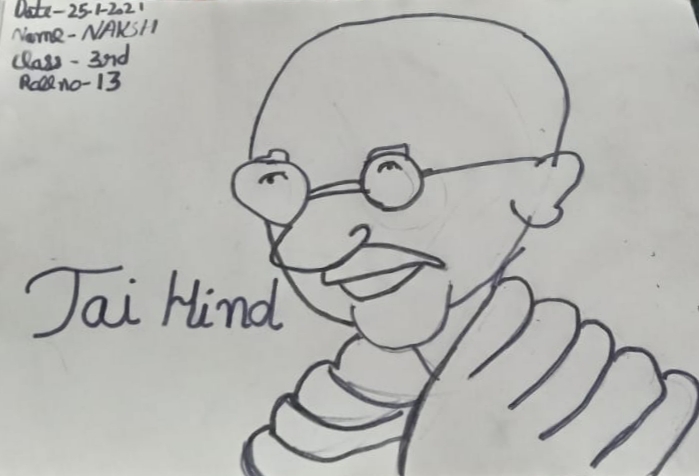 Date-25-1-2021
Name-NAKSH
Class-3rd
Roll no-13
Jai Hind